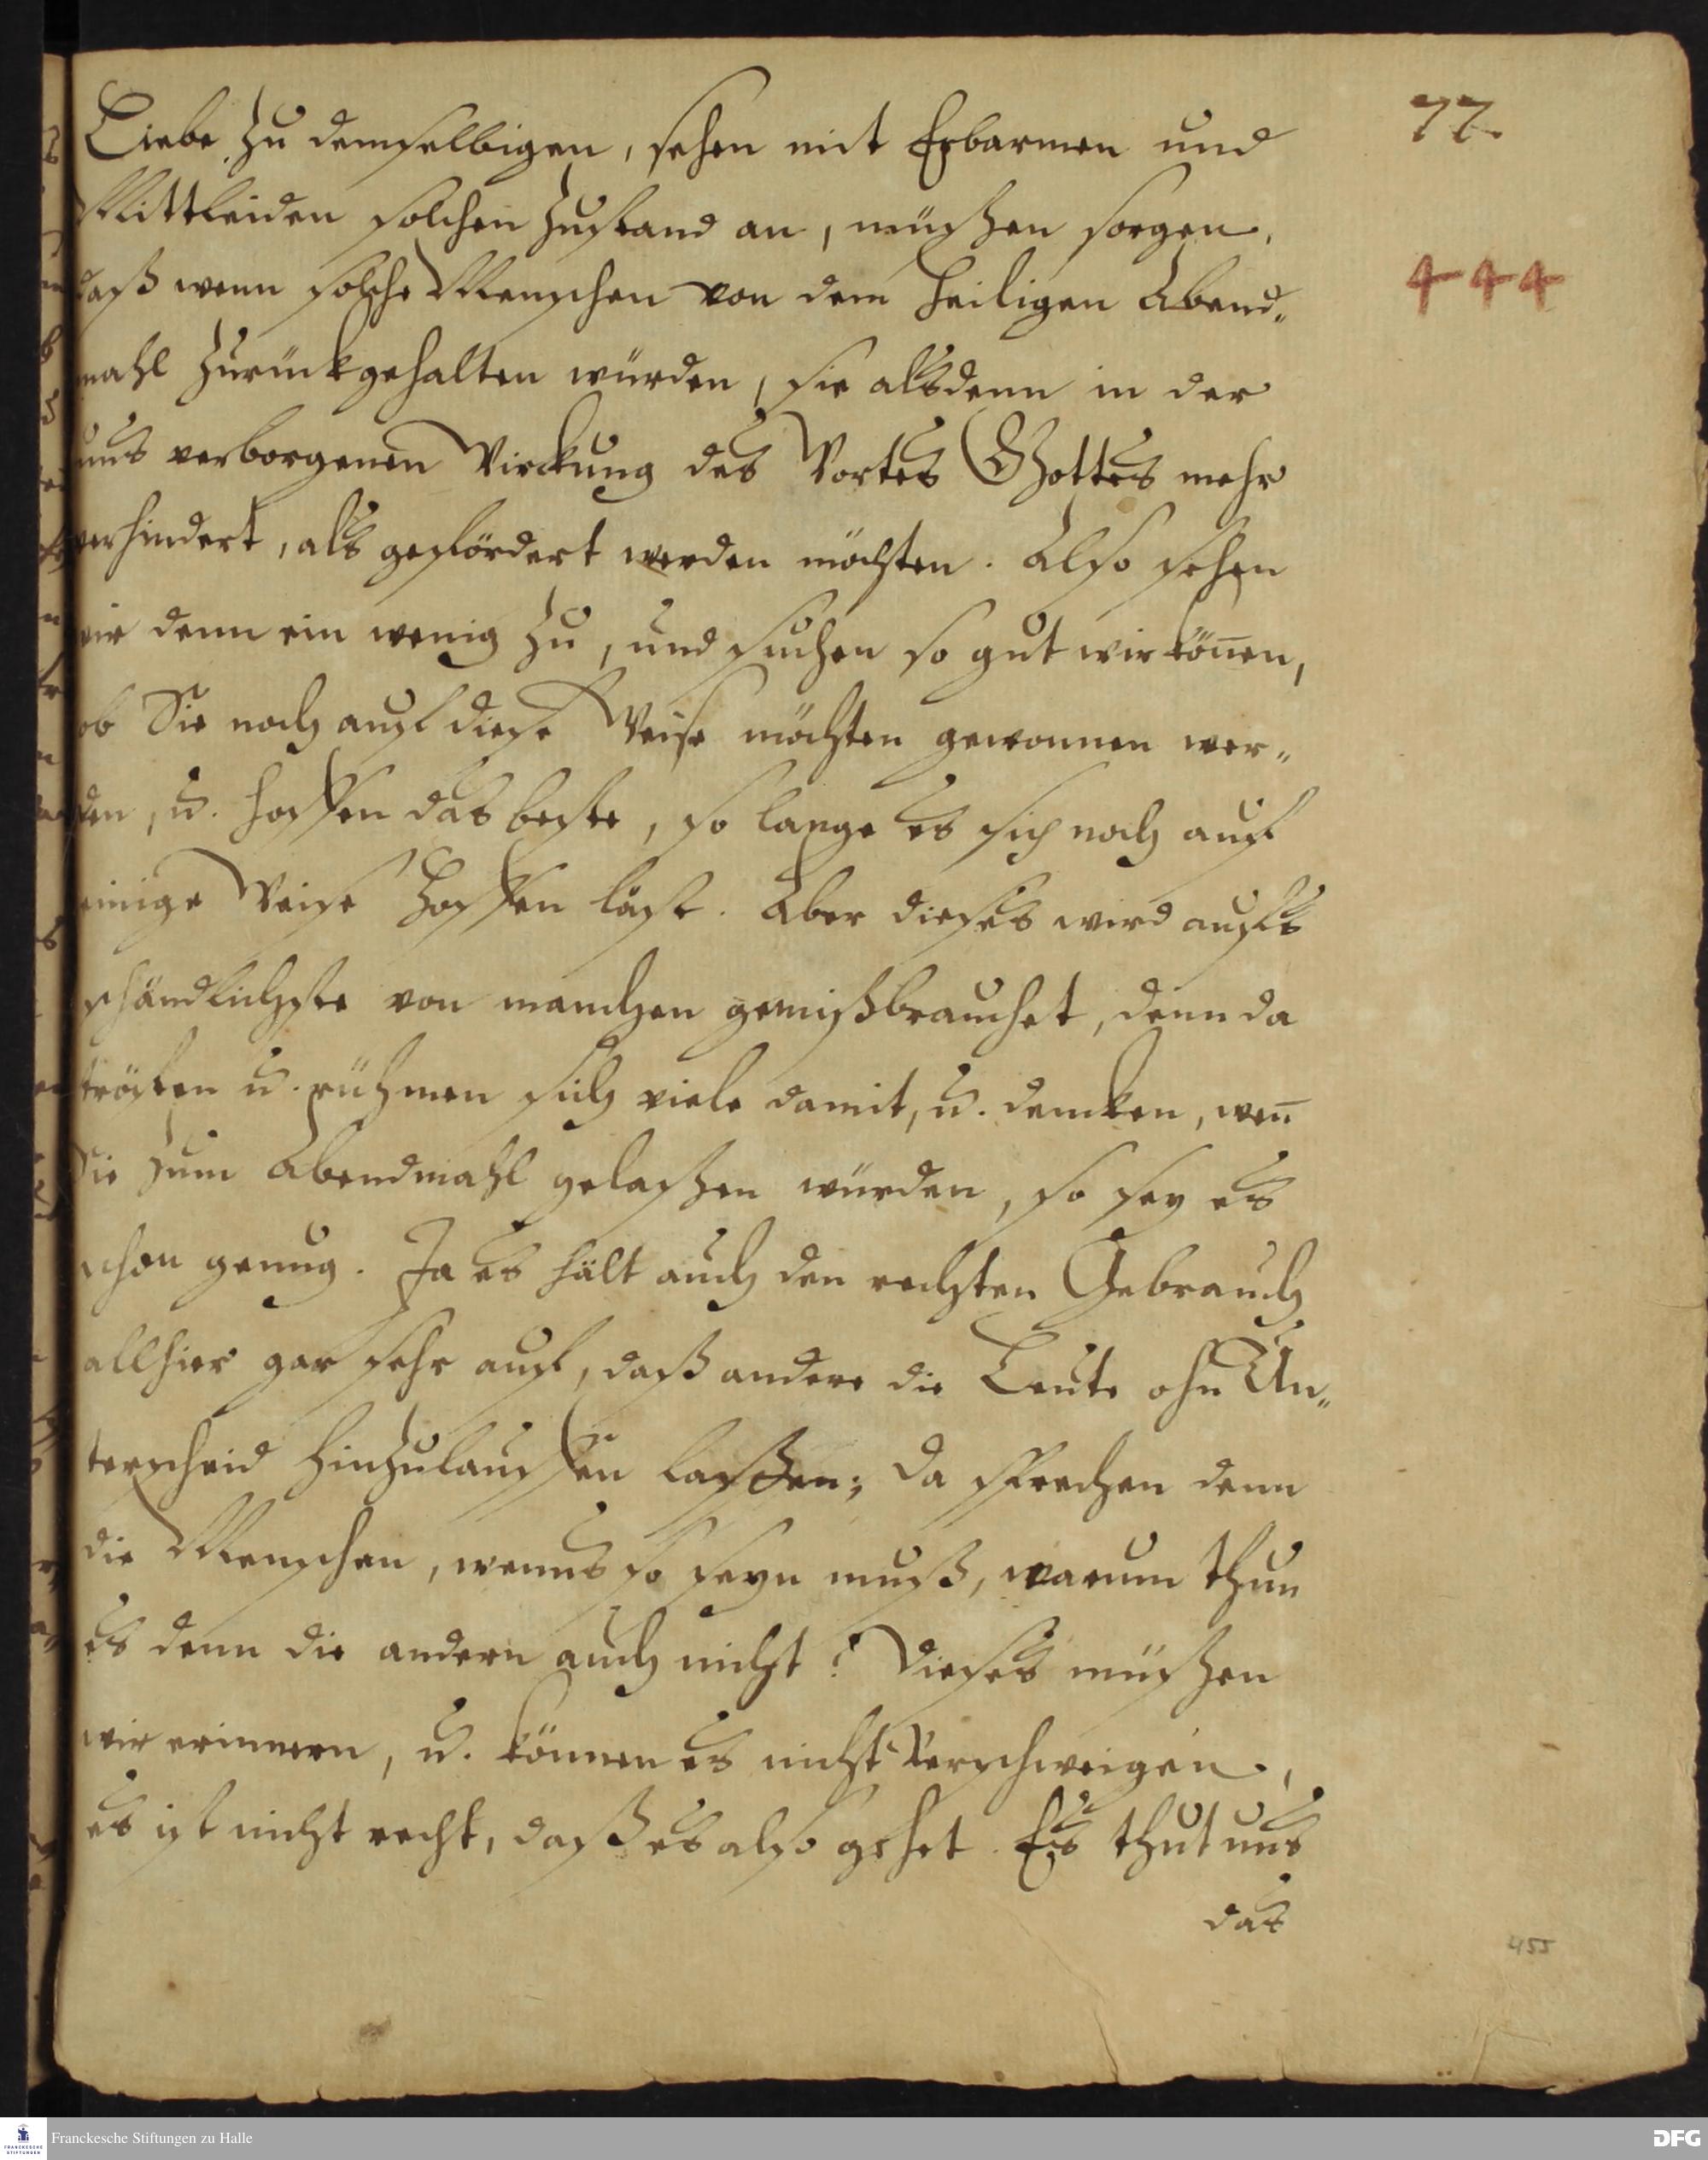 77.
444
Liebe zu demselbigen, sehen mit Erbarmen und
Mittleiden solchen Zustand an, müßen sorgen,
daß wenn solche Menschen von dem heiligen Abend„
mahl zurückgehalten würden, sie alsdenn in der
uns verborgenen Wirckung des Wortes Gottes mehr
verhindert, als gefördert werden möchten. Also sehen
wir denn ein wenig zu, und suchen so gut wir kön̄en,
ob Sie noch auf diese Weise möchten gewonnen wer„
den, u. hoffen das beste, so lange es sich noch auf
einige Weise hoffen läst. Aber dieses wird aufs
schändlichste von manchen gemißbrauchet, denn da
trösten u. rühmen sich viele damit, u. dencken, wen̄
Sie zum Abendmahl gelaßen würden, so sey es
schon genug. Ja es hält auch den rechten Gebrauch
allhier gar sehr auf, daß andere die Leute ohn Un„
terscheid hinzulauffen laßen; da sprechen denn
die Menschen, wenns so seyn muß, warum thun
es denn die andern auch nicht? Dieses müßen
wir erinnern, u. können es nicht verschweigen,
es ist nicht recht, daß es also gehet. Es thut uns
das
455
Franckesche Stiftungen zu Halle
DFG